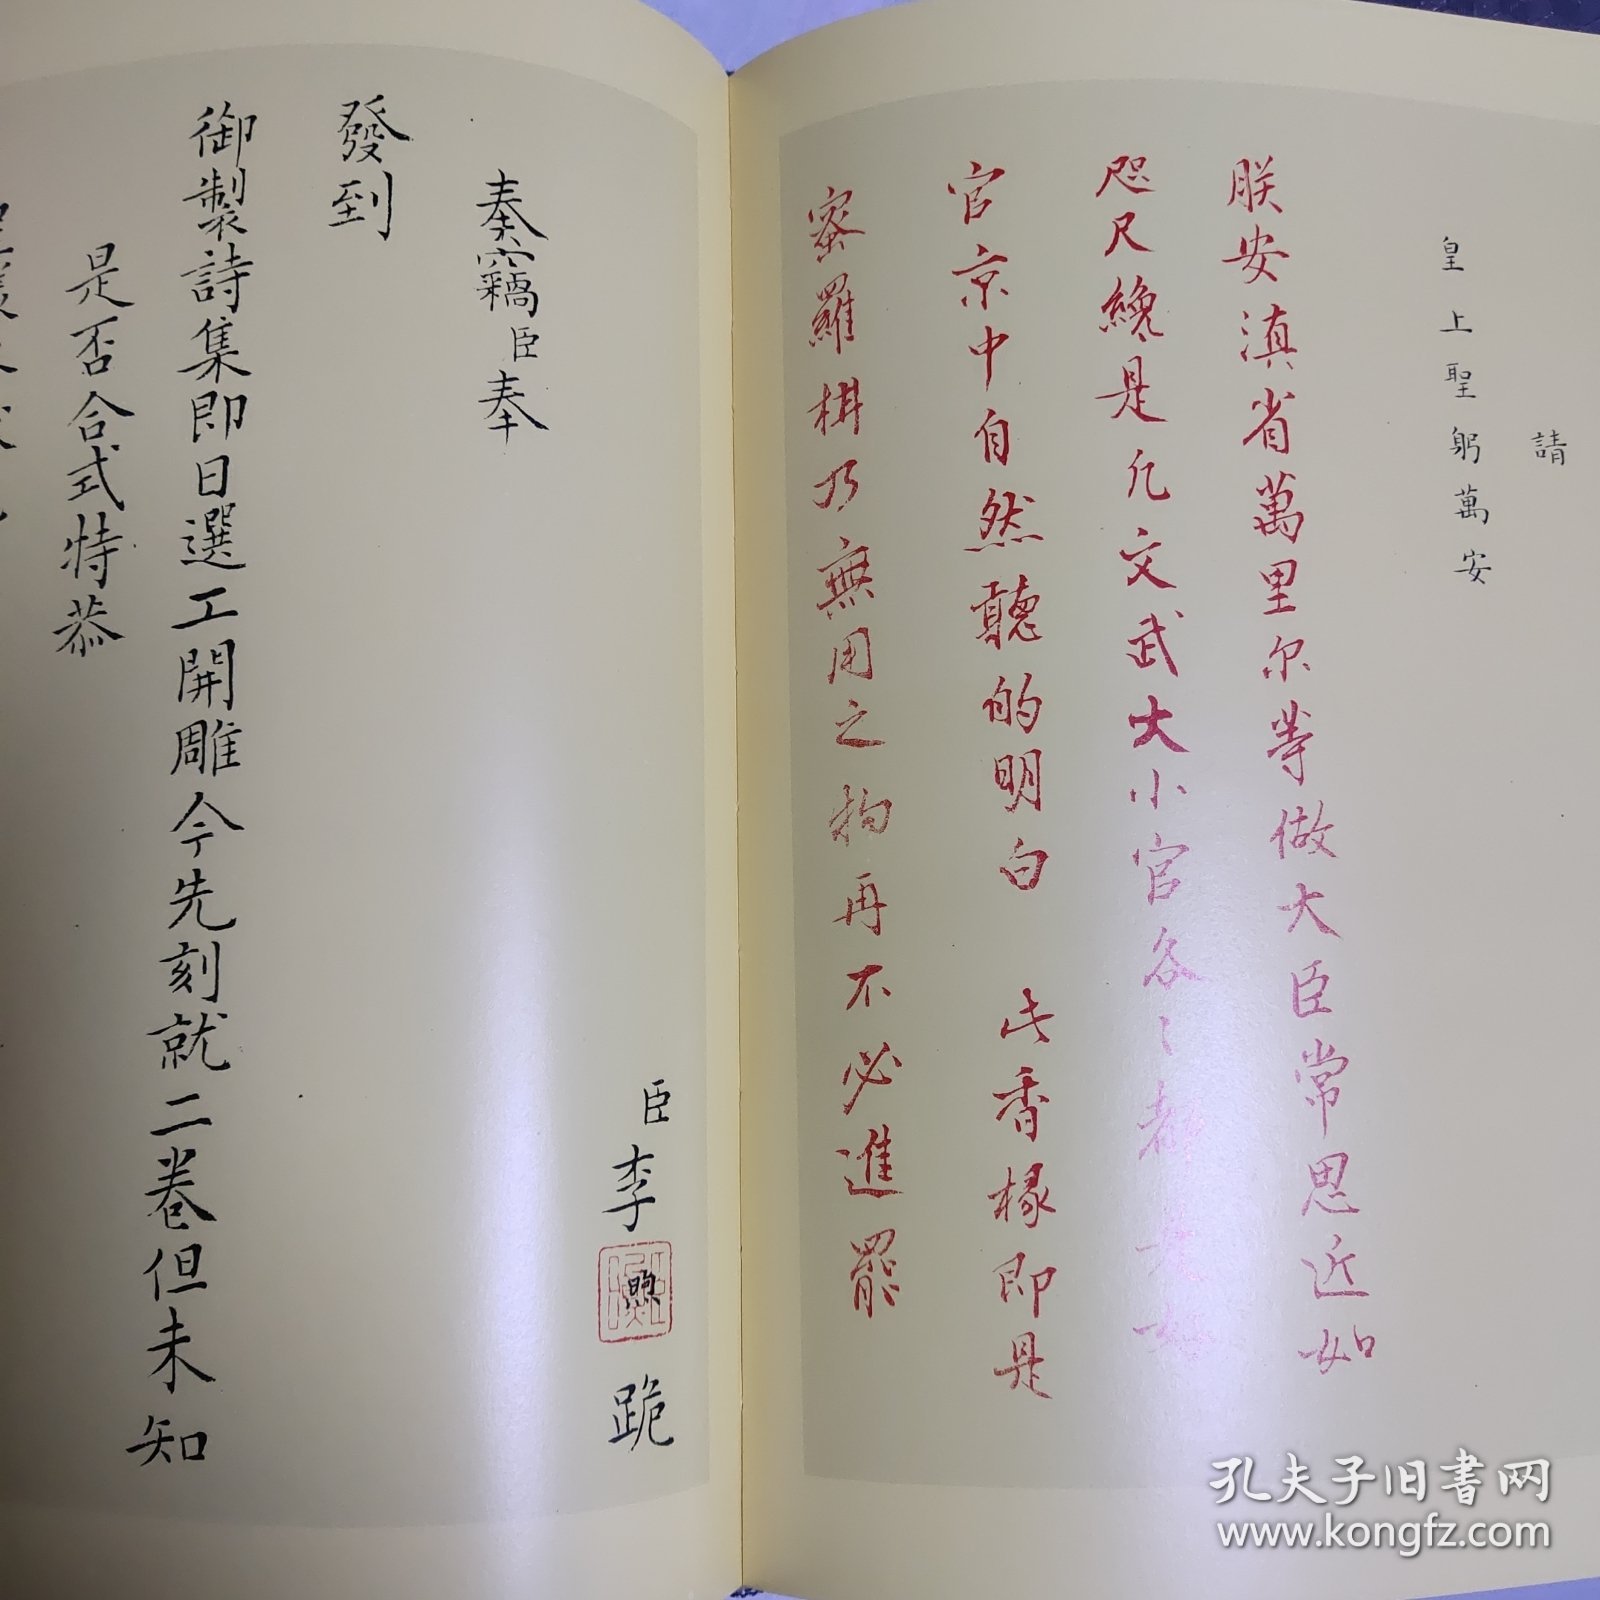 請
皇上聖躬萬安
朕安滇省萬里尔等做大臣常思近如
咫尺纔是凢文武大小官各〻都是好
官京中自然聽的明白 此香橼即是
蜜羅柑乃無用之物再不必進罷
臣李煦跪
奏竊臣奉
發到
御製詩集即日選工開雕今先刻就二卷但未知
是否合式特恭
孔夫子旧书网
www.kongfz.com